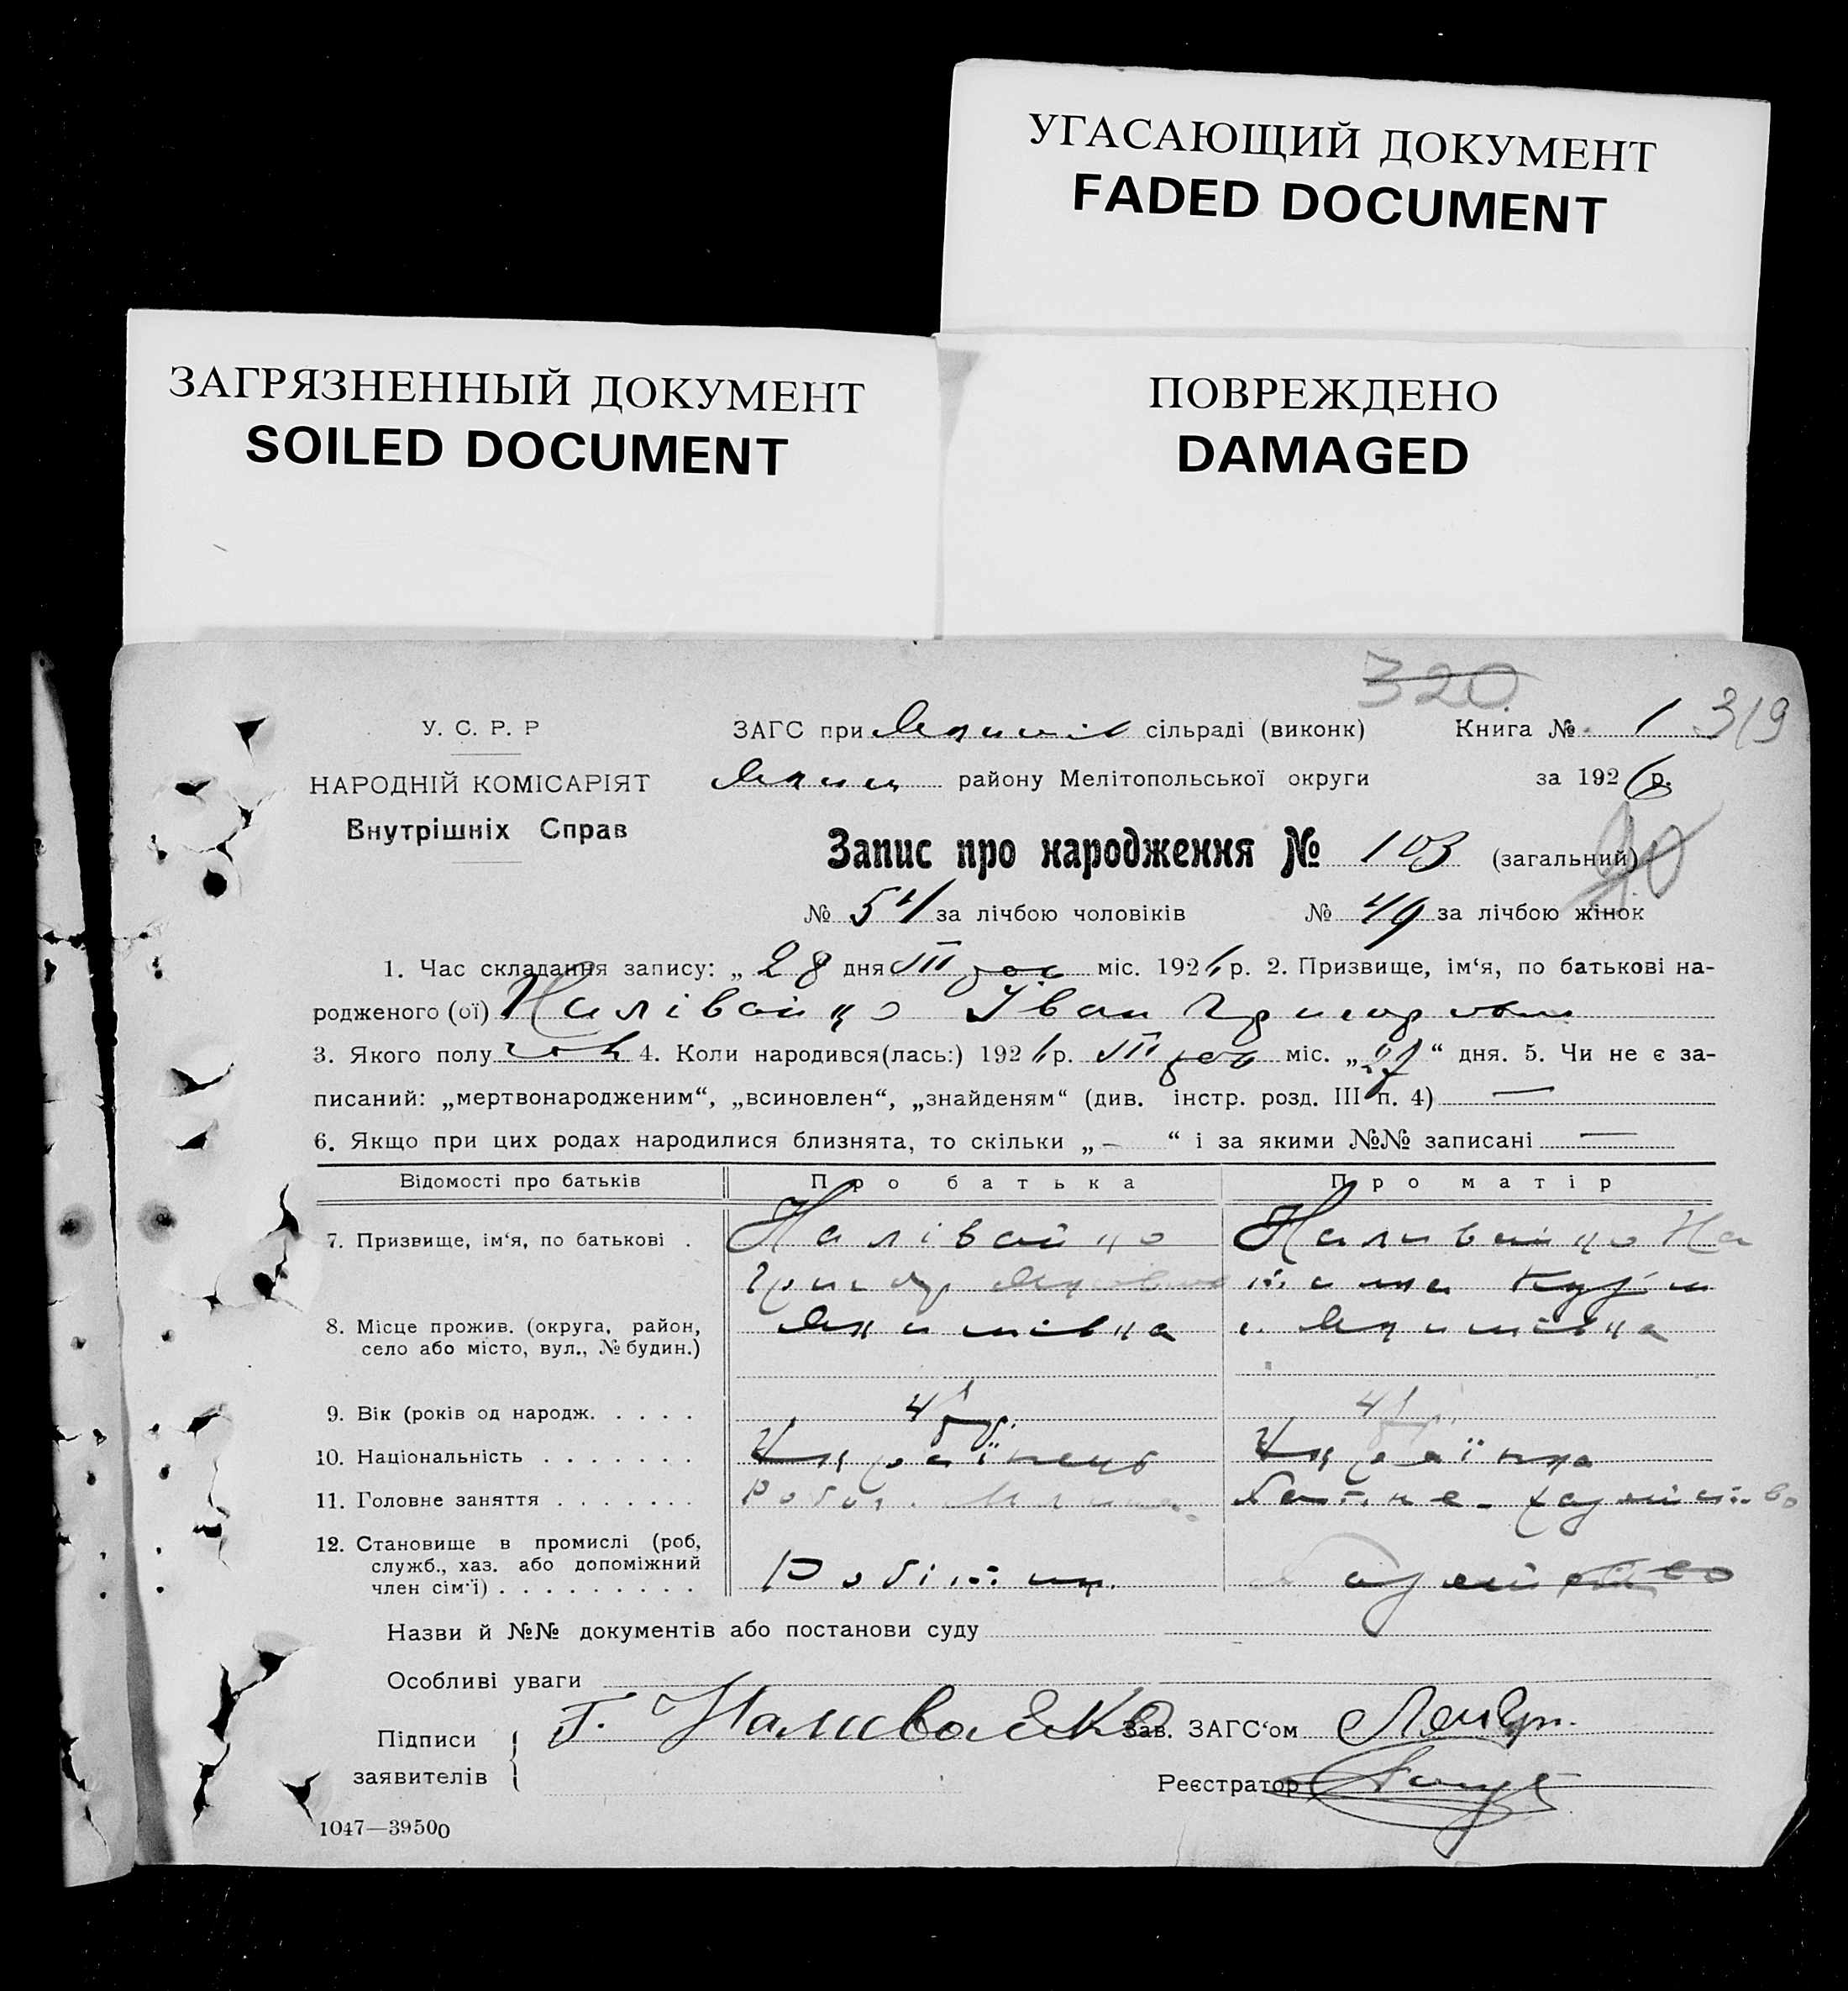 УГАСАЮЩИЙ ДОКУМЕНТ
FADED DOCUMENT
ЗАГРЯЗНЕННЫЙ ДОКУМЕНТ
SOILED DOCUMENT
ПОВРЕЖДЕНО
DAMAGED
320
У. С. Р. Р
ЗАГС при сільраді (виконк)
Книга № 1 319
НАРОДНІЙ КОМІСАРІЯТ
району Мелітопольської округи
за 1926 р.
Внутрішніх Справ
Запис про народження № 103 (загальний)
90
№ 54 за лічбою чоловіків № 49 за лічбою жінок
1. Час складання запису: „ 28 дня міс. 1926 р. 2. Призвище, ім‘я, по батькові на-
родженого (ої) Налівайко Іван Григорович
3. Якого полу чол 4. Коли народився(лась:) 1926 р. міс. „ 27 “ дня. 5. Чи не є за-
писаний: „мертвонародженим“, „всиновлен“, „знайденям“ (див. інстр. розд. III п. 4) —
6. Якщо при цих родах народилися близнята, то скільки „ – “ і за якими №№ записані —
Відомості про батьків Про батька Про матір
7. Призвище, ім‘я, по батькові . Налівайко Наливайко На
Григор
8. Місце прожив. (округа, район, Якимівка с. Якимівка
село або місто, вул., № будин.)
9. Вік (років од народж. . . . . 41 р. 41 р.
10. Національність . . . . . . . Українець Українка
11. Головне заняття . . . . . . . Хатне-хазяйство
12. Становище в промислі (роб,
служб., хаз. або допоміжний Робітник Хазяйство
член сім‘ї) . . . . . . . . .
Назви й №№ документів або постанови суду
Особливі уваги
Підписи Г. Наливайко Зав. ЗАГС‘ом
заявителів Реєстратор
1047—39500